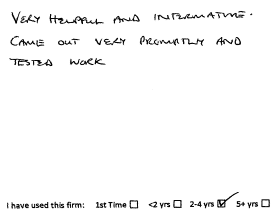 VERY HELPFUL AND INFORMATIVE.
CAME OUT VERY PROMPTLY AND
TESTED WORK
I have used this firm: 1st Time ☐ <2 yrs ☐ 2-4 yrs ☑ 5+ yrs ☐